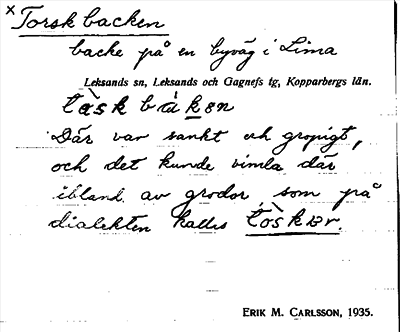 x Torskbacken
backe på en byväg i Lima
Leksands sn, Leksands och Gagnefs tg, Kopparbergs län.
Där var sankt och gropigt,
och det kunde vimla där
ibland av grodor, som på
dialekten kallas
ERIK M. CARLSSON, 1935.